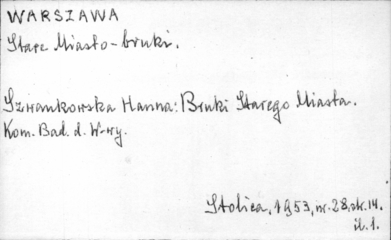 WARSZAWA
Stare Miasto - bruki.
Szwankowska Hanna: Bruki Starego Miasta.
Kom. Bad. d. W-wy.
Stolica, 1953, nr. 28, str. 14.
il. 1.